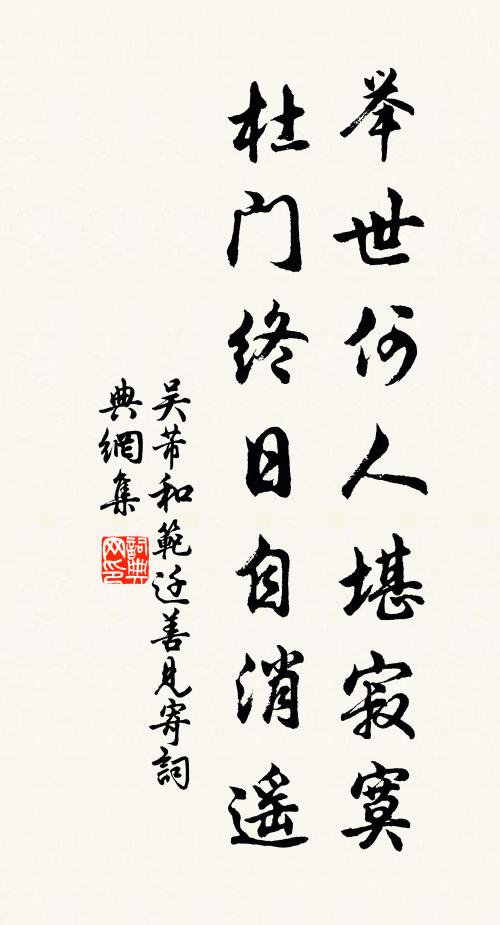 举世何人堪寂寞
杜门终日自消遥
吴芾和範迁善见寄詞
典網集
詞典
网印